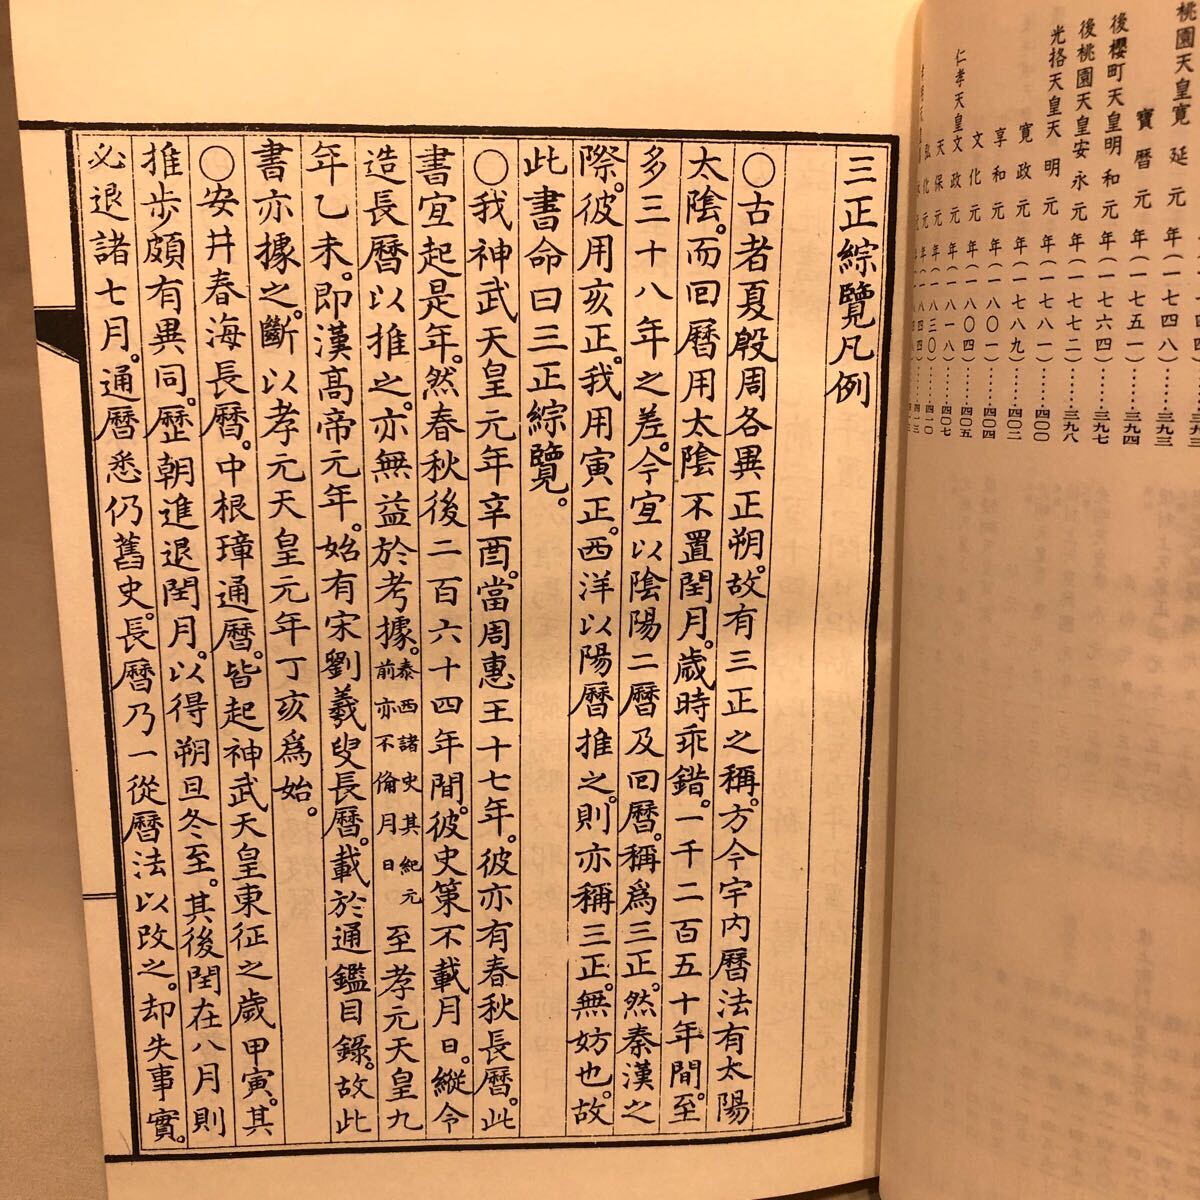 桃園天皇寛延元年(一七四八)……三九三
寶暦元年(一七五一)……三九四
後櫻町天皇明和元年(一七六四)……三九七
後桃園天皇安永元年(一七七二)……三九八
光格天皇天明元年(一七八一)……四〇〇
寛政元年(一七八九)……四〇二
享和元年(一八〇一)……四〇四
文化元年(一八〇四)……四〇五
仁孝天皇文政元年(一八一八)……四〇七
天保元年(一八三〇)……四一〇
弘化元年(一八四四)……四一三
三正綜覽凡例
〇古者夏殷周各異正朔。故有三正之稱。方今宇內曆法有太陽
太陰。而回曆用太陰不置閏月。歲時乖錯。一千二百五十年間。至
多三十八年之差。今宜以陰陽二曆及回曆。稱爲三正。然秦漢之
際。彼用亥正。我用寅正。西洋以陽曆推之。則亦稱三正。無妨也。故
此書命曰三正綜覽。
〇我神武天皇元年辛酉。當周惠王十七年。彼亦有春秋長曆。此
書宜起是年。然春秋後二百六十四年間。彼史策不載月日。縱令
造長曆以推之。亦無益於考據。泰西諸史其紀元前亦不備月日。至孝元天皇九
年乙未。即漢高帝元年。始有宋劉羲叟長曆。載於通鑑目錄。故此
書亦據之。斷以孝元天皇元年丁亥爲始。
〇安井春海長曆。中根璋通曆。皆起神武天皇東征之歲甲寅。其
推步頗有異同。歷朝進退閏月。以得朔旦冬至。其後閏在八月則
必退諸七月。通曆悉仍舊史。長曆乃一從曆法以改之。却失事實。